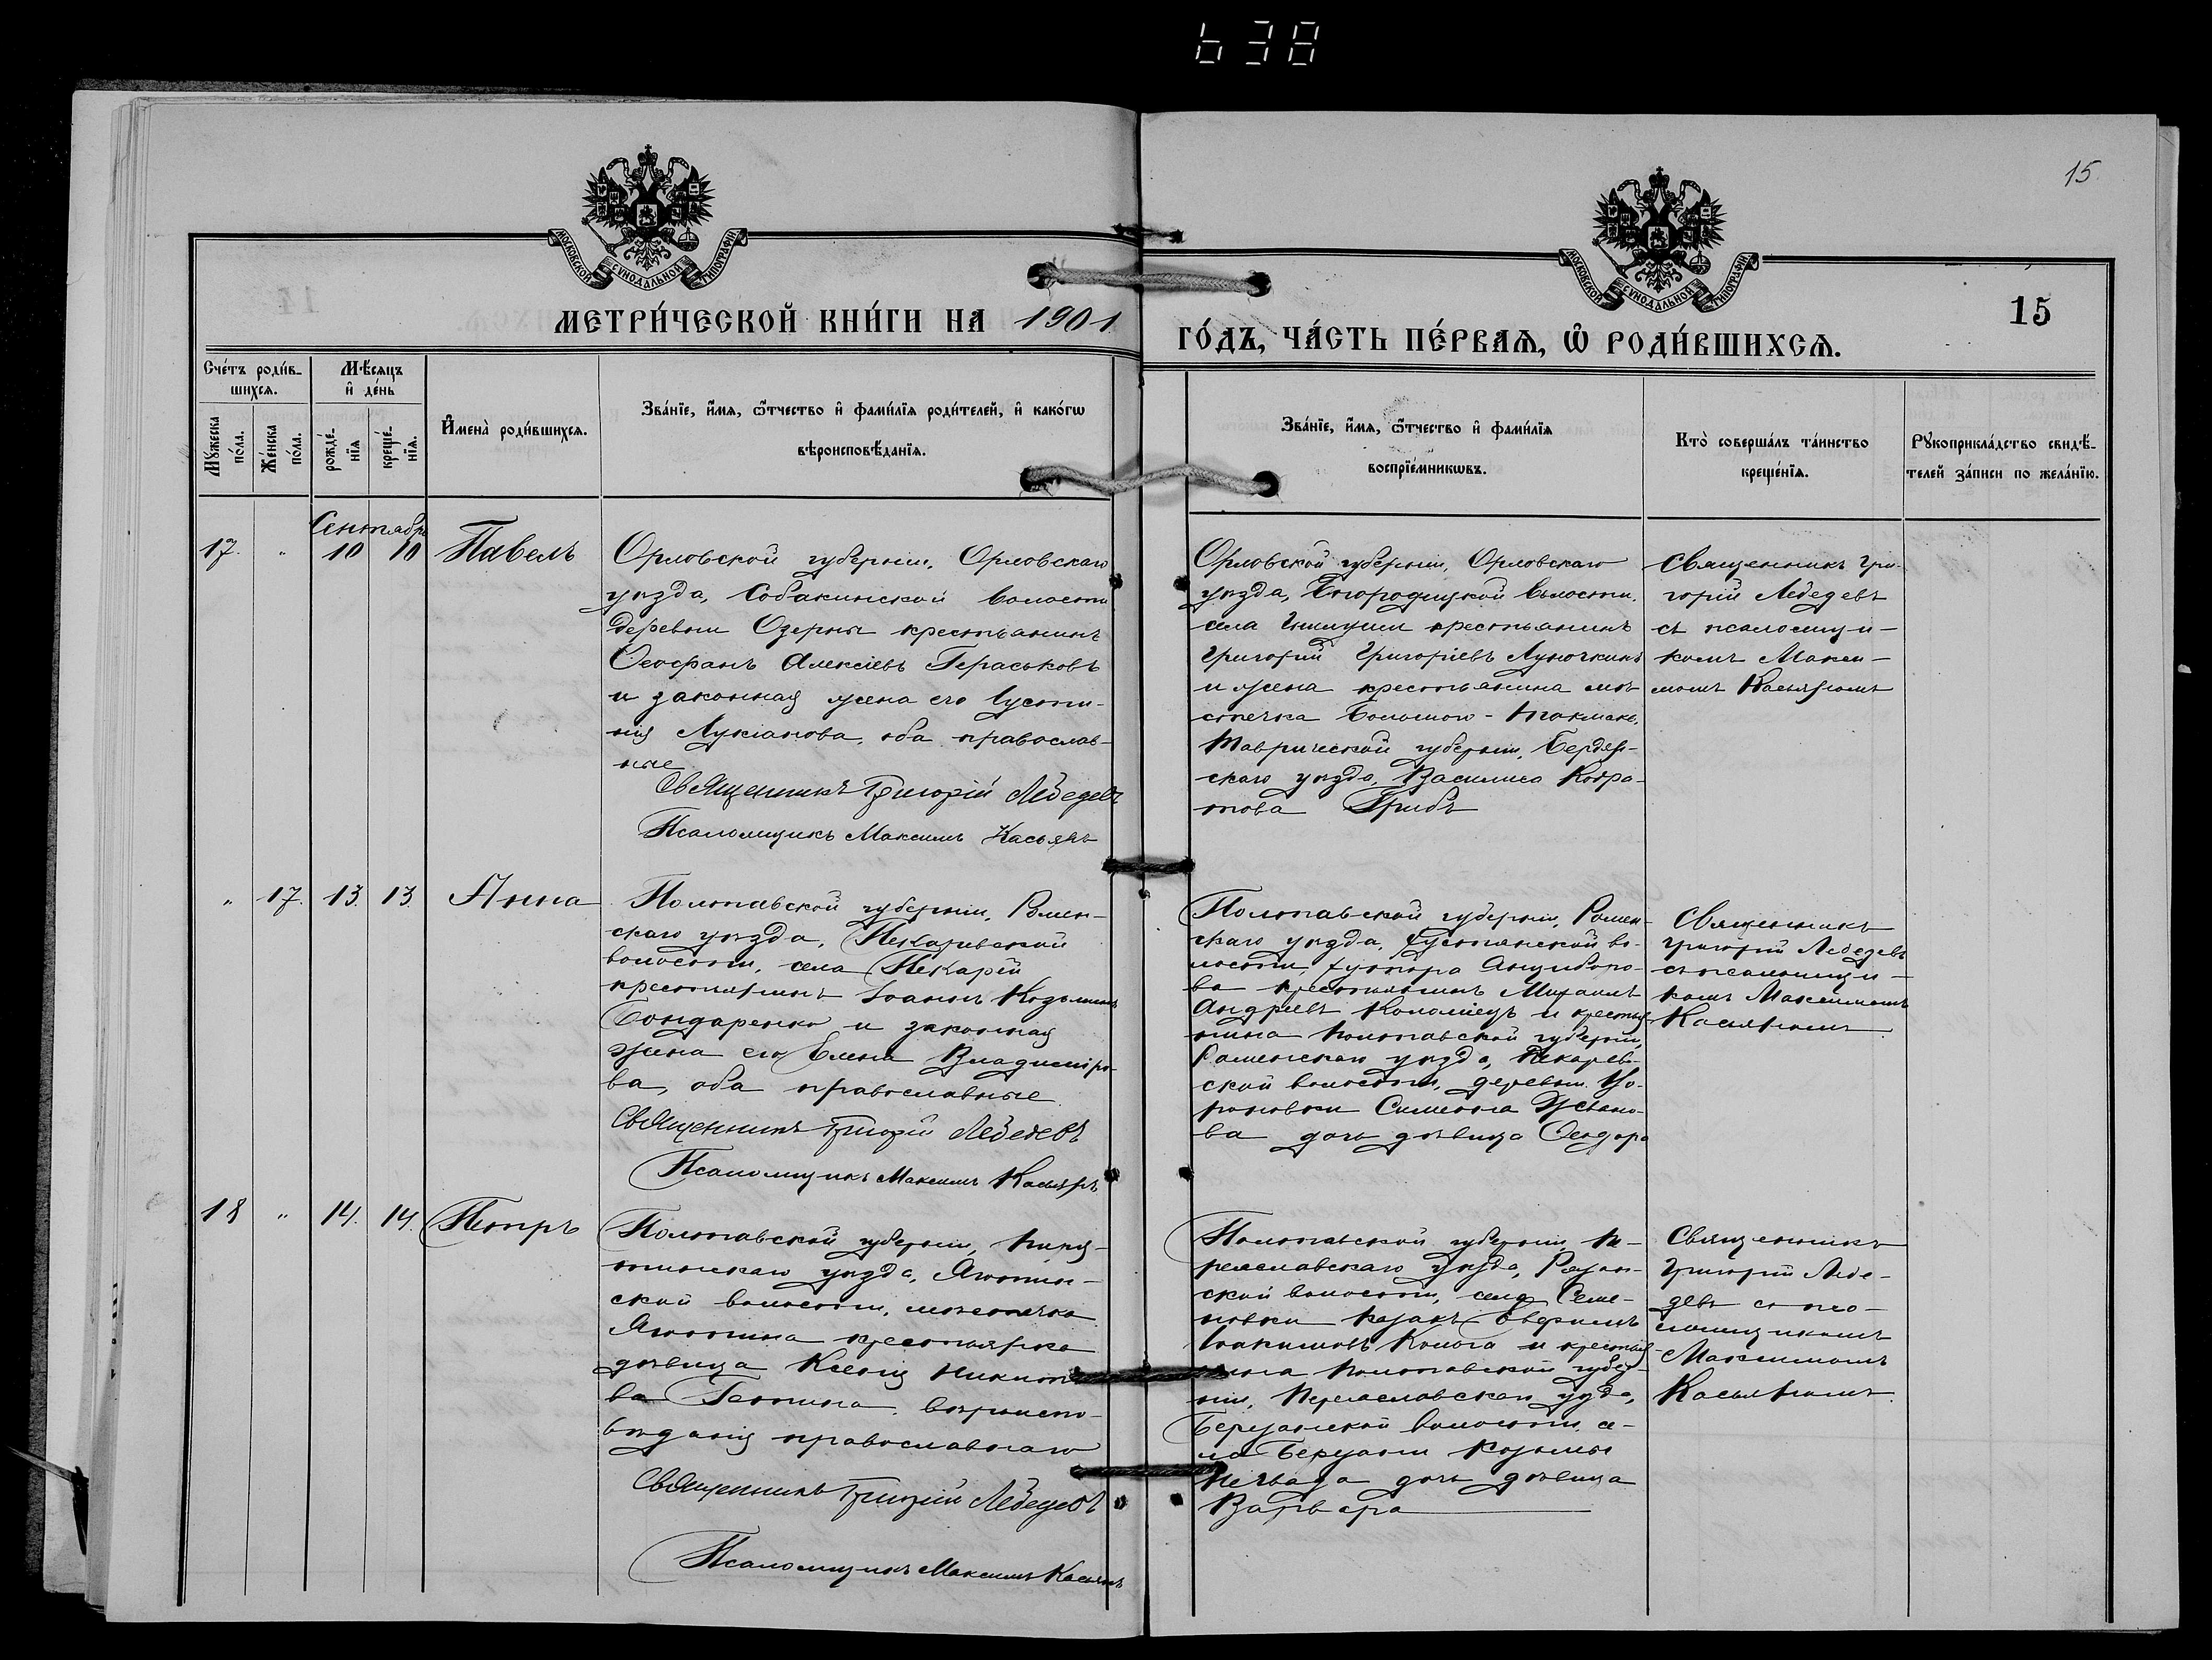 638
15
МОСКОВСКОЙ СѴНОДАЛЬНОЙ ТИПОГРАФІИ
МОСКОВСКОЙ СѴНОДАЛЬНОЙ ТИПОГРАФІИ
МЕТРИ́ЧЕСКОЙ КНИ́ГИ НА 1901
ГО́ДЪ, ЧА́СТЬ ПЕ́РВАѦ, Ѽ РОДИ́ВШИХСѦ.
15
Сче́тъ роди́в-
шихсѧ.
Мꙋ́жеска по́ла.
Же́нска по́ла.
Мѣ́сѧцъ
и҆ де́нь
рожде́-
нїѧ
креще́-
нїѧ.
И҆мена̀ роди́вшихсѧ.
Зва́нїе, и҆́мѧ, ѻ҆́тчество и҆ фами́лїѧ роди́телей, и҆ како́гѡ
вѣроисповѣ́данїѧ.
Зва́нїе, и҆́мѧ, ѻ҆́тчество и҆ фами́лїѧ
воспрїе́мникѡвъ.
Кто̀ соверша́лъ та́инство
креще́нїѧ.
Рꙋкоприкла́дство свидѣ́-
телей за́писи по жела́нїю.
Сентябрь
17. " 10 10 Павелъ
Орловской губерніи, Орловскаго
уѣзда, Собакинской волости
деревни Озерны крестьянинъ
Ѳеофанъ Алексіевъ Гераськовъ
и законная жена его Іусти-
нія Лукіанова, оба православ-
ные
Священникъ Григорій Лебедевъ
Псаломщикъ Максимъ Касьянъ
Орловской губерніи, Орловскаго
уѣзда, Богородицкой волости,
села крестьянинъ
Григорій Григоріевъ Луночкинъ
и жена крестьянина мѣ-
стечка Большого-Токмака,
Таврической губерніи, Бердян-
скаго уѣзда, Василиса Кодра-
това Грибъ
Священникъ Гри-
горій Лебедевъ
съ псаломщи-
комъ Макси-
момъ Касьяномъ
" 17. 13. 13. Анна
Полтавской губерніи, Ромен-
скаго уѣзда, Пекаревской
волости, села Пекарей
крестьянинъ Іоаннъ Козьминъ
Бондаренко и законная
жена его Елена Владимиро-
ва, оба православные
Священникъ Григорій Лебедевъ
Псаломщикъ Максимъ Касьянъ
Полтавской губерніи, Ромен-
скаго уѣзда, Хустянской во-
лости, хутора Анциборо-
ва крестьянинъ Михаилъ
Андреевъ Коломіецъ и крестья-
нина Полтавской губерніи,
Роменскаго уѣзда, Пекарев-
ской волости, деревни
Симеона
ва дочь дѣвица Ѳеодора
Священникъ
Григорій Лебедевъ
съ псаломщи-
комъ Максимомъ
Касьяномъ
18 " 14. 14. Петръ
Полтавской губерніи, Пиря-
тинскаго уѣзда, Яготин-
ской волости, мѣстечка
Яготина крестьянка
дѣвица Ксенія Никито-
ва Гетина, вѣроиспо-
вѣданія православнаго
Священникъ Григорій Лебедевъ
Псаломщикъ Максимъ Касьянъ
Полтавской губерніи, Пе-
реяславскаго уѣзда,
ской волости, села Семе-
новки казакъ Евфимъ
Іоакимовъ и крестья-
нина Полтавской губер-
ніи, Переяславскаго уѣзда,
Березанской волости, се-
ла Березани Козьмы
дочь дѣвица
Варвара
Священникъ
Григорій Лебе-
девъ съ пса-
ломщикомъ
Максимомъ
Касьяномъ